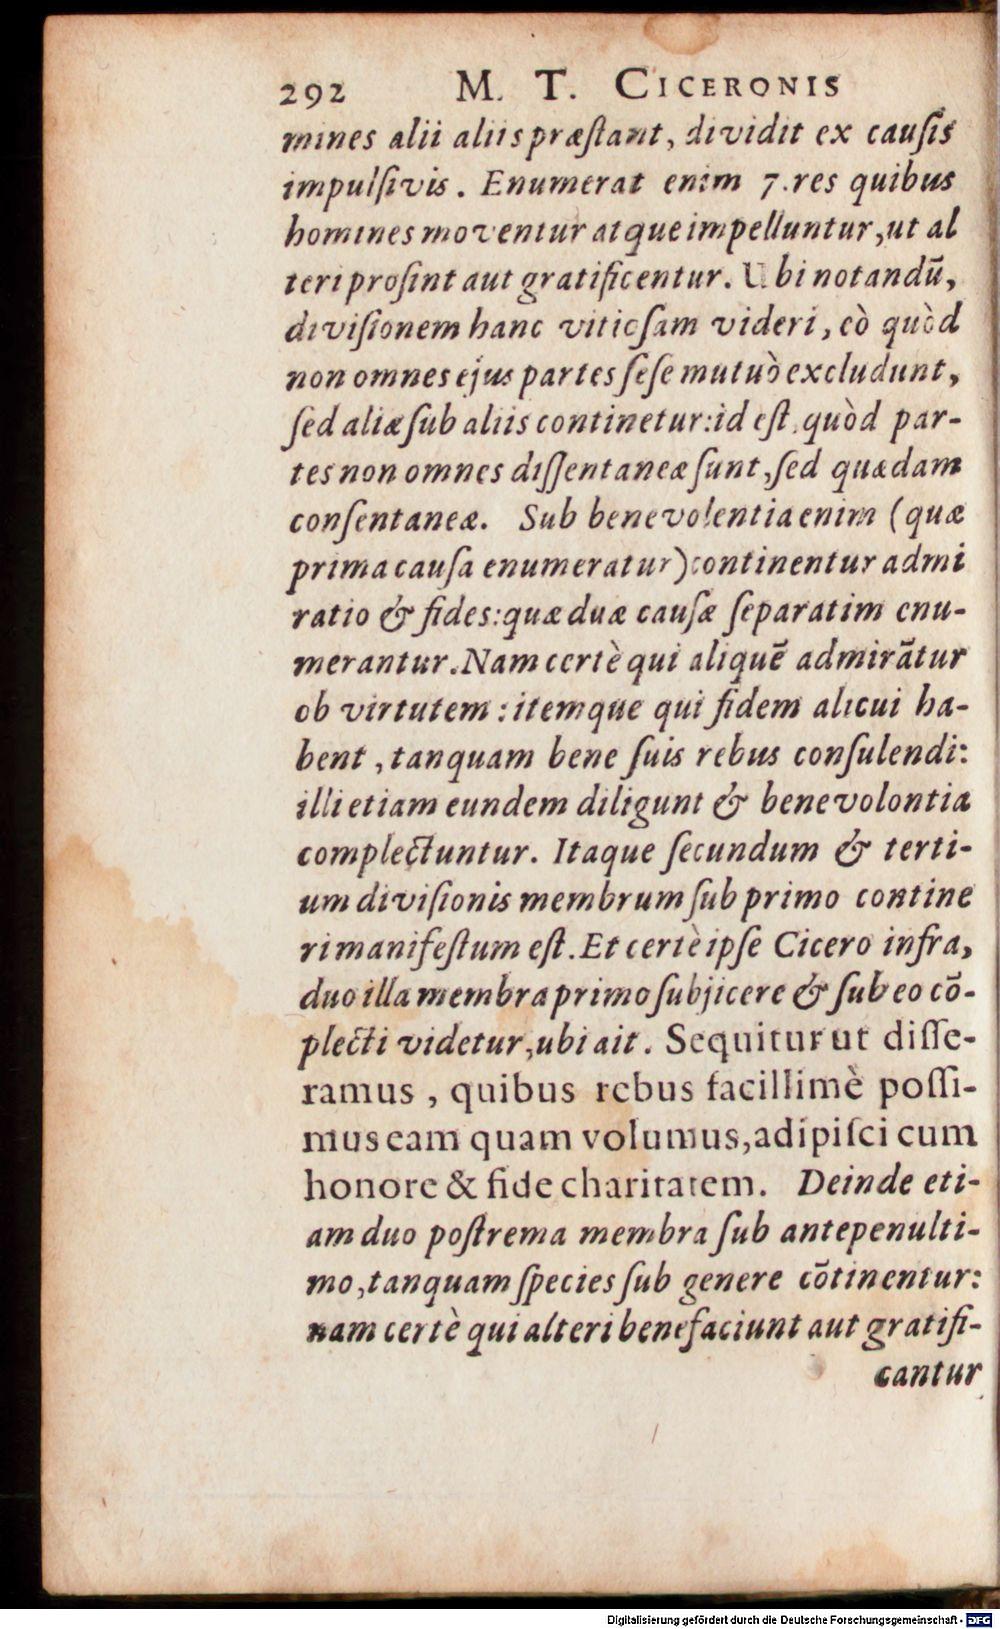 292 M. T. CICERONIS
mines alii aliis præſtant, dividit ex cauſis
impulſivis. Enumerat enim 7. res quibus
homines moventur atque impelluntur, ut al
teri proſint aut gratificentur. Ubi notandū,
diviſionem hanc vitioſam videri, eò quòd
non omnes ejus partes ſeſe mutuò excludunt,
ſed aliæ ſub aliis continetur: id eſt, quòd par-
tes non omnes diſſentaneæ ſunt, ſed quædam
conſentaneæ. Sub benevolentia enim (quæ
prima cauſa enumeratur) continentur admi
ratio & fides: quæ duæ cauſæ ſeparatim enu-
merantur. Nam certè qui aliquē admirātur
ob virtutem: itemque qui fidem alicui ha-
bent, tanquam bene ſuis rebus conſulendi:
illi etiam eundem diligunt & benevolontia
complectuntur. Itaque ſecundum & terti-
um diviſionis membrum ſub primo contine
ri manifeſtum eſt. Et certè ipſe Cicero infra,
duo illa membra primo ſubjicere & ſub eo cō-
plecti videtur, ubi ait. Sequitur ut diſſe-
ramus, quibus rebus facillimè poſſi-
mus eam quam volumus, adipiſci cum
honore & fide charitatem. Deinde eti-
am duo poſtrema membra ſub antepenulti-
mo, tanquam ſpecies ſub genere cōtinentur:
nam certè qui alteri benefaciunt aut gratifi-
cantur
Digitalisierung gefördert durch die Deutsche Forschungsgemeinschaft - DFG